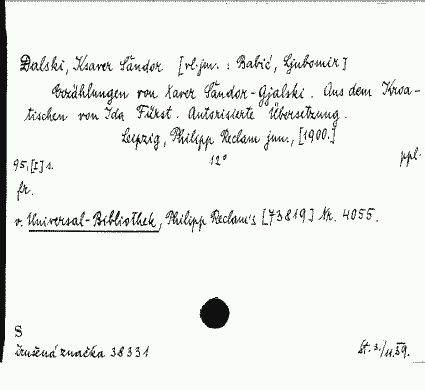 Đalski, Ksaver Šandor [vl. jm. : Babić, Ljubomir]
Erzählungen von Xaver Šandor-Gjalski. Aus dem Kroa-
tischen von Ida Fürst. Autorisierte Übersetzung.
Leipzig, Philipp Reclam jun., [1900.]
95, [I] s. 12° ppl.
fr.
v. Universal-Bibliothek, Philipp Reclam's [73819] Nr. 4055.
S
zrušená značka 38331 St. 3./11.59.